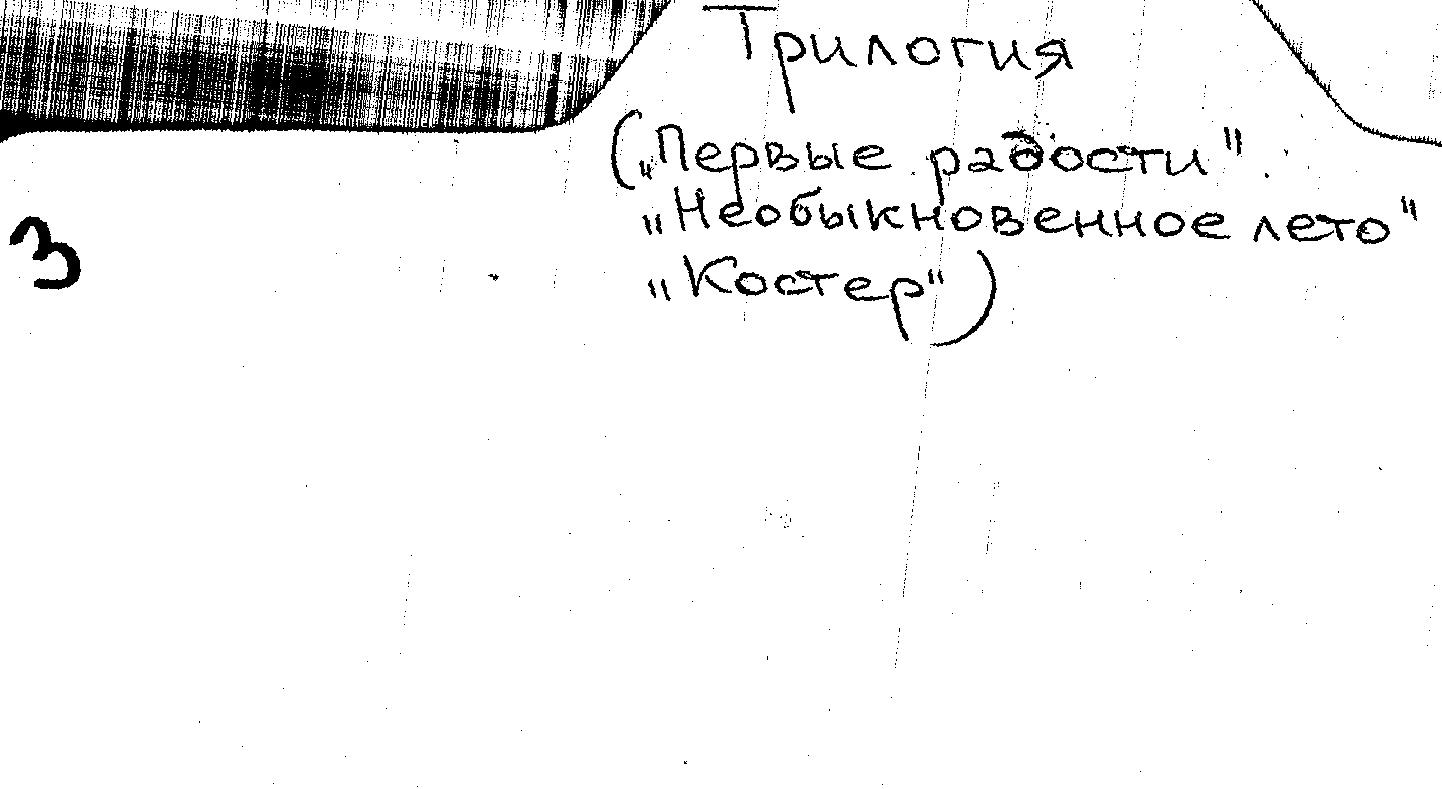 Трилогия
(„Первые радости".
„Необыкновенное лето"
„Костер")
3